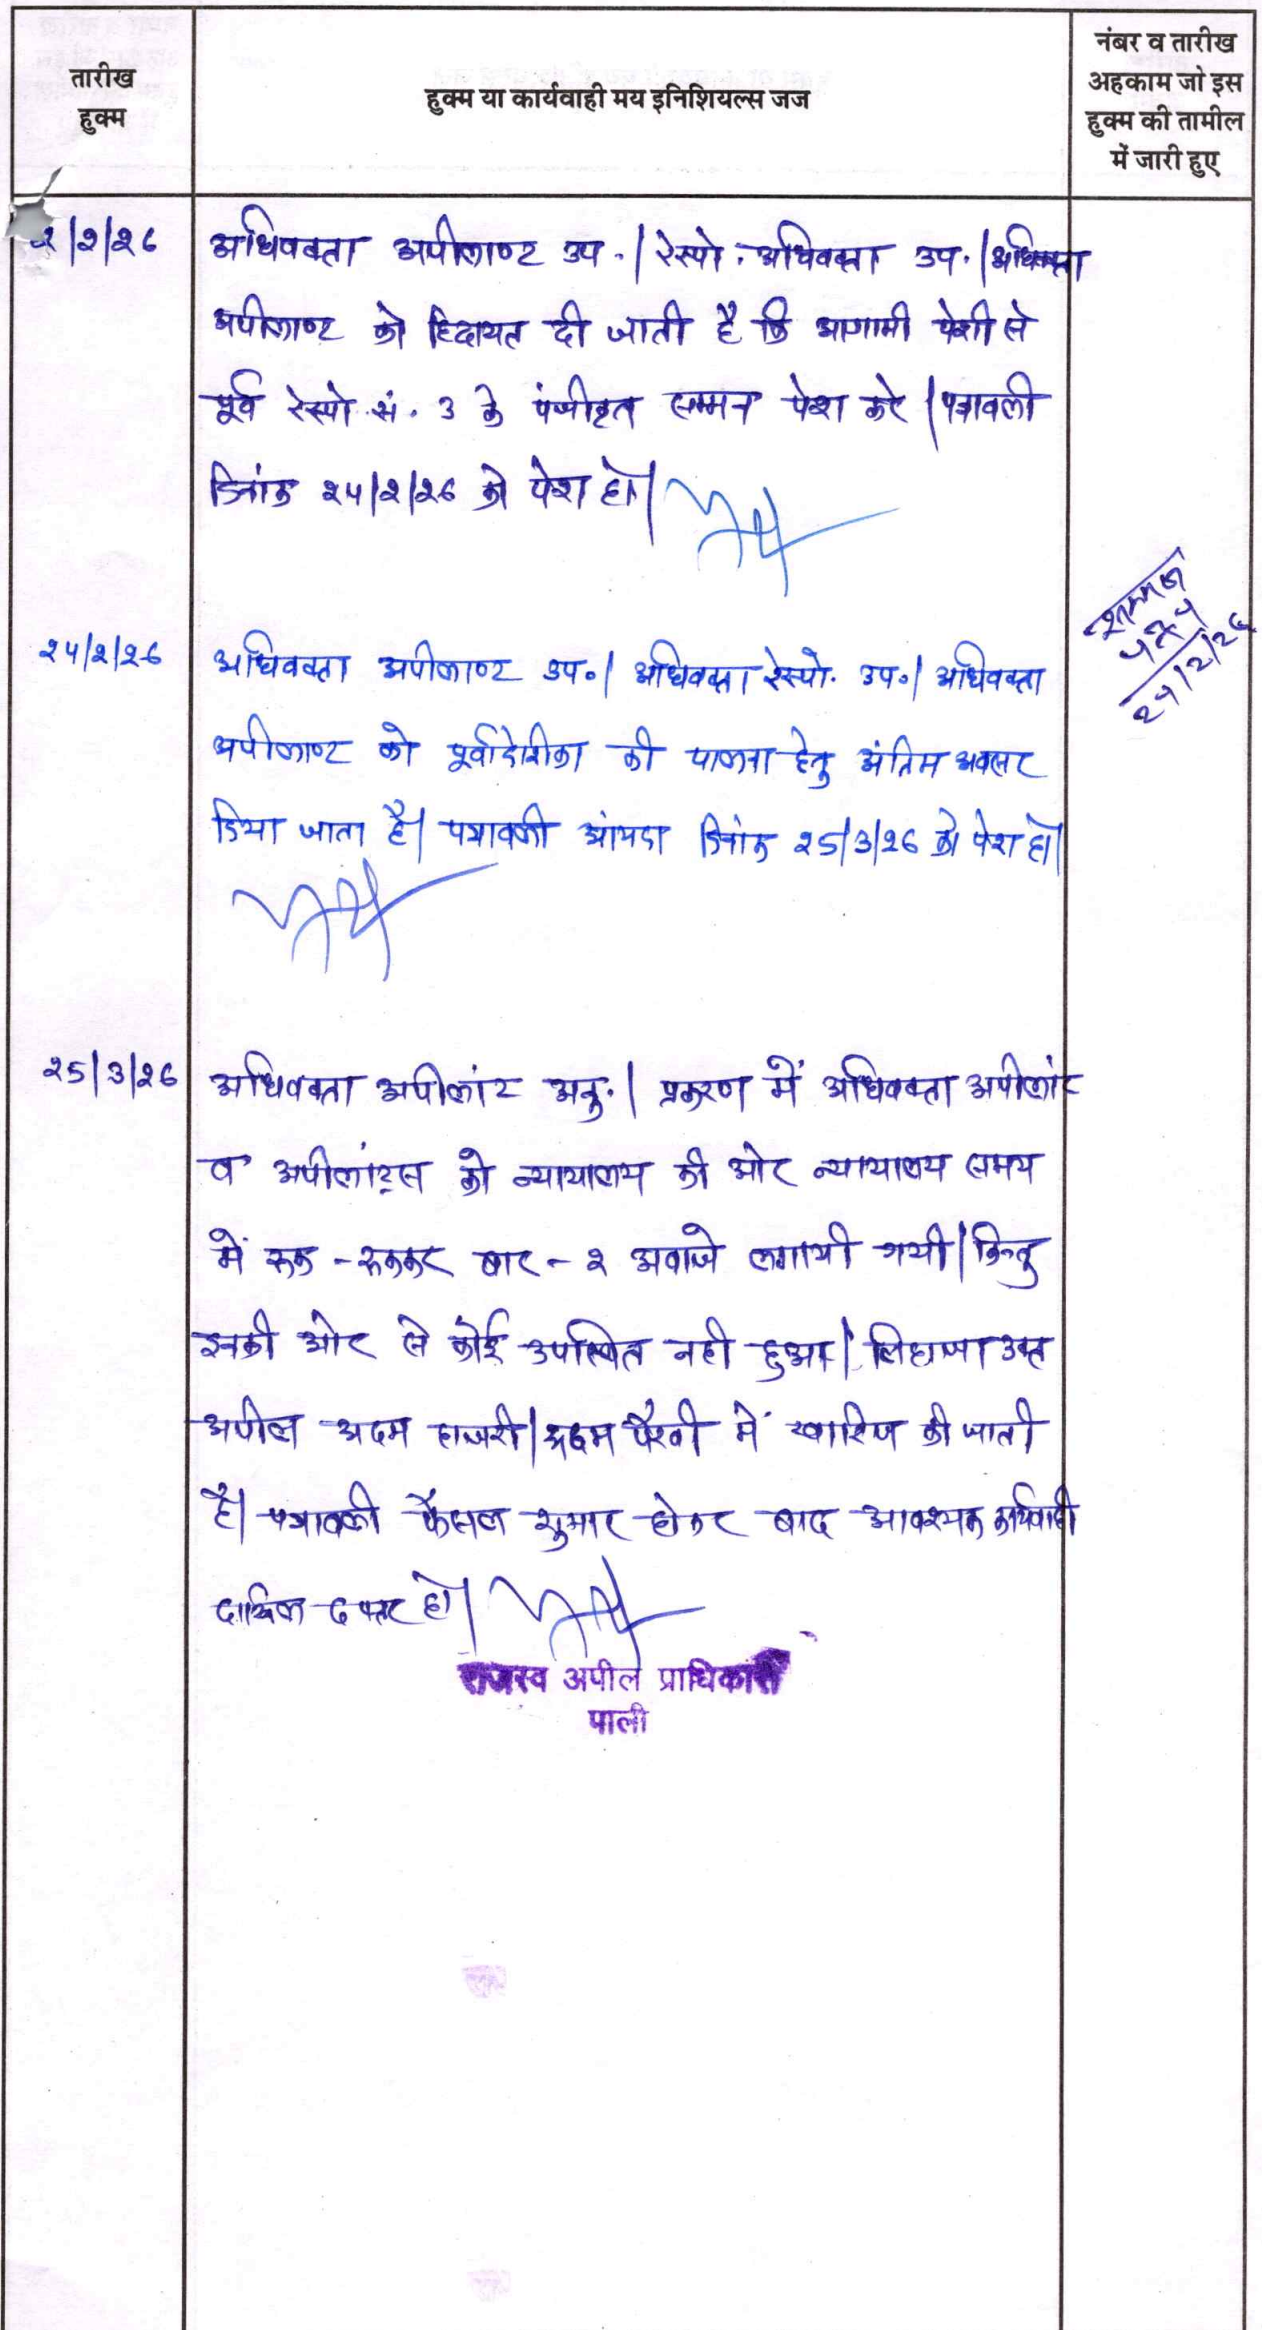 तारीख
हुक्म
हुक्म या कार्यवाही मय इनिशियल्स जज
नंबर व तारीख
अहकाम जो इस
हुक्म की तामील
में जारी हुए
२/२/२6
अधिवक्ता अपीलाण्ट उप. | रेस्पो. अधिवक्ता उप. | अधिवक्ता
अपीलाण्ट को हिदायत दी जाती है कि आगामी पेशी से
पूर्व रेस्पो. सं. 3 के पंजीकृत सम्मन पेश करे | पत्रावली
दिनांक २५/२/२6 को पेश हो |
२५/२/२6
अधिवक्ता अपीलाण्ट उप० | अधिवक्ता रेस्पो. उप० | अधिवक्ता
अपीलाण्ट को पूर्वादेशिका की पालना हेतु अंतिम अवसर
दिया जाता है | पत्रावली आंयदा दिनांक २5/3/२6 को पेश हो |
२५/2/26
२5/3/२6
अधिवक्ता अपीलांट अनु. | प्रकरण में अधिवक्ता अपीलांट
व अपीलांट्स को न्यायालय की ओर न्यायालय समय
में रूक - रूककर बार - २ अवाजे लगायी गयी | किन्तु
इनकी ओर से कोई उपस्थित नही हुआ | लिहाजा उक्त
अपील अदम हाजरी | अदम पैरवी में खारिज की जाती
है | पत्रावली फैसल शुमार होकर बाद आवश्यक कार्यवाही
दाखिल दफ्तर हो |
राजस्व अपील प्राधिकारी
पाली